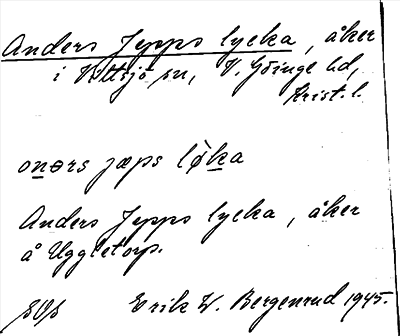 Anders Jepps lycka, åker
i Vittsjö sn, V. Göinge hd,
Krist. l.
onərs jæps løka
Anders Jepps lycka, åker
å Uggletorp.
Erik W. Bergenrud 1945.